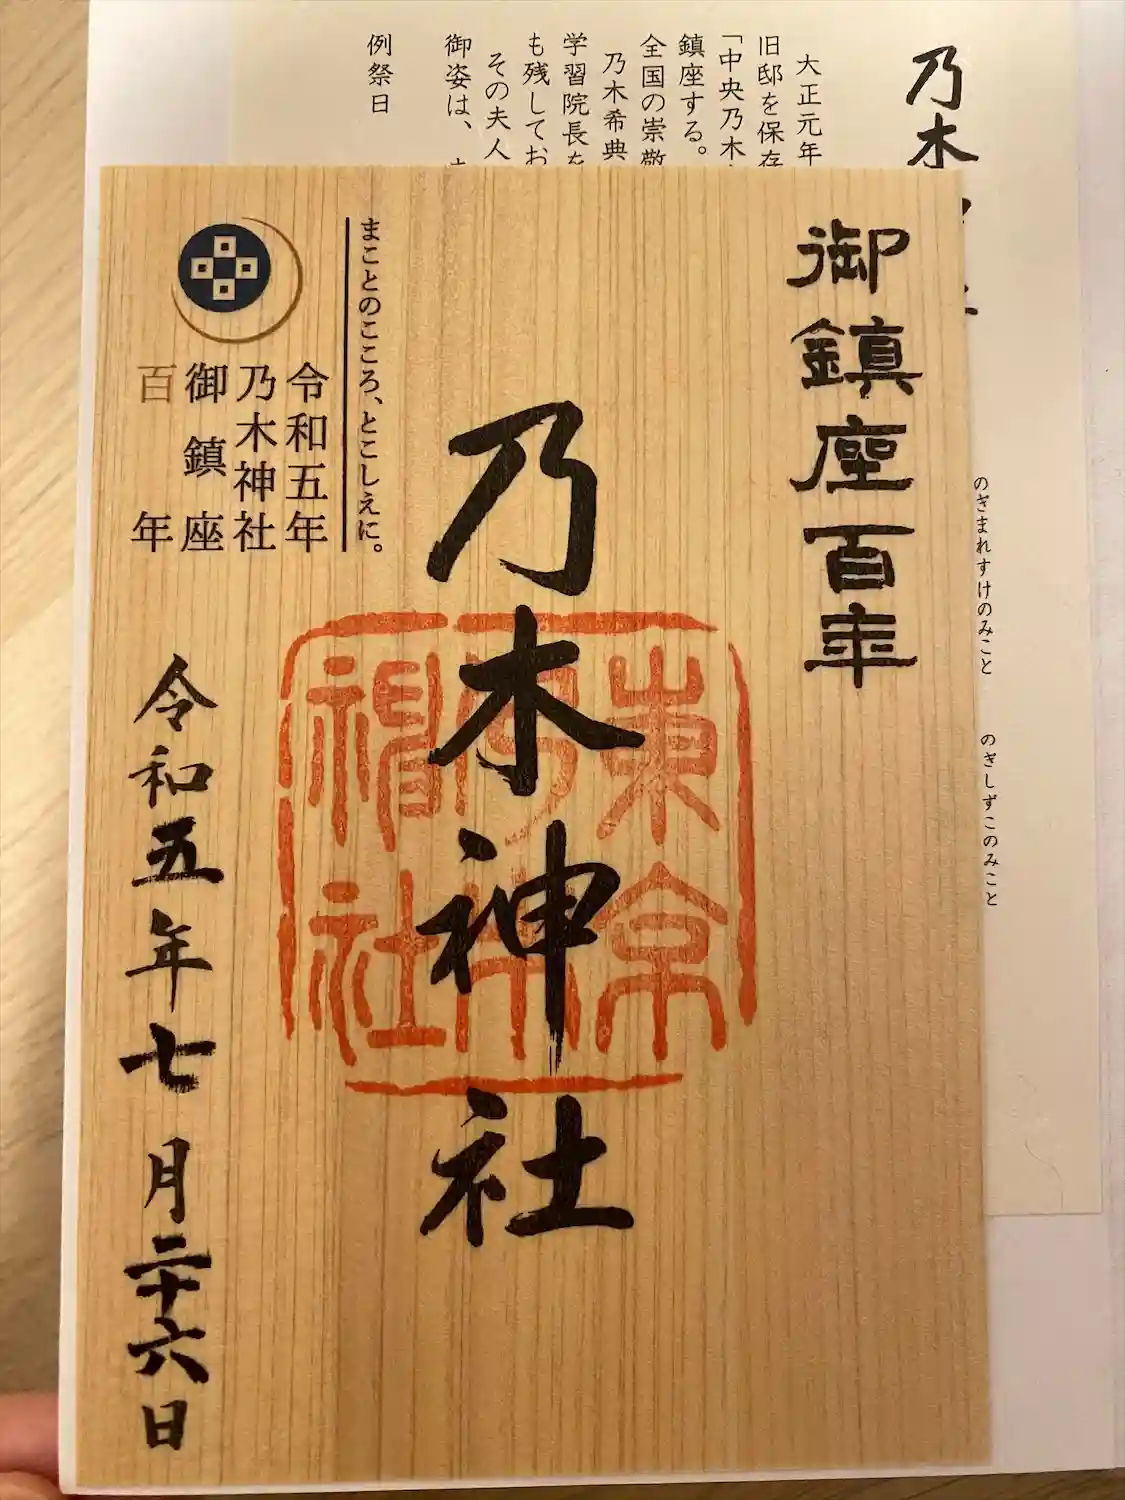 乃木
大正元年
旧邸を保存
「中央乃木
鎮座する。
全国の崇敬
乃木希典
学習院長を
も残してお
その夫人
御姿は、
例祭日
のぎまれすけのみこと
のぎしずこのみこと
御鎮座百年
乃木神社
東京
乃木
神社
まことのこころ、とこしえに。
令和五年
乃木神社
御鎮座
百年
令和五年七月二十六日